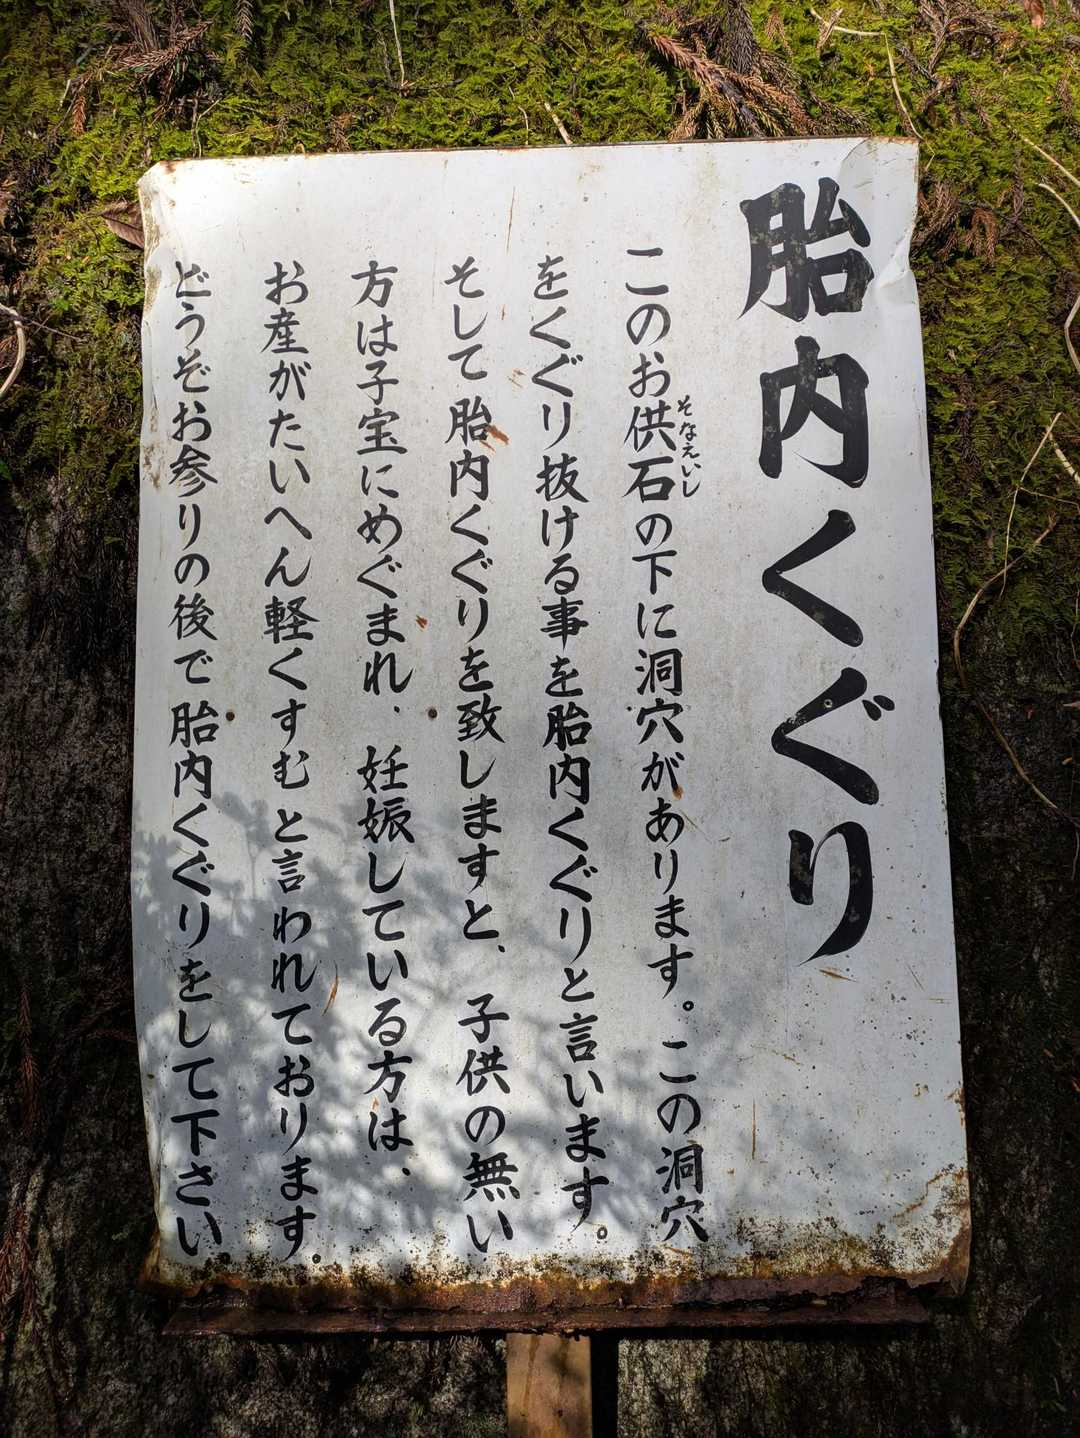 胎内くぐり
このお供石の下に洞穴があります。この洞穴
そなえいし
をくぐり抜ける事を胎内くぐりと言います。
そして胎内くぐりを致しますと、子供の無い
方は子宝にめぐまれ、妊娠している方は、
お産がたいへん軽くすむと言われております。
どうぞお参りの後で胎内くぐりをして下さい。